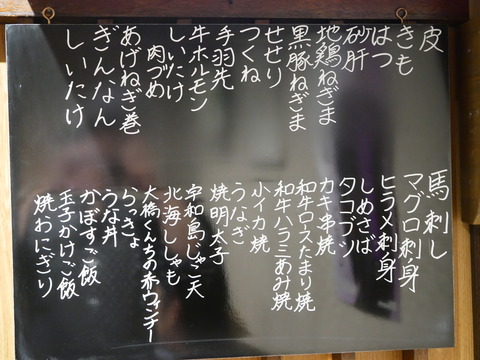 皮
きも
はつ
砂肝
地鶏ねぎま
黒豚ねぎま
せせり
つくね
手羽先
牛ホルモン
しいたけ肉づめ
あげねぎ巻
ぎんなん
しいたけ
馬刺し
マグロ刺身
ヒラメ刺身
しめさば
タコブツ
カキ串焼
和牛ロースたまり焼
和牛ハラミあみ焼
小イカ焼
うなぎ
焼明太子
宇和島じゃこ天
北海ししゃも
大橋くんちの赤ウィンナー
らっきょ
うな丼
かぼすご飯
玉子かけご飯
焼おにぎり